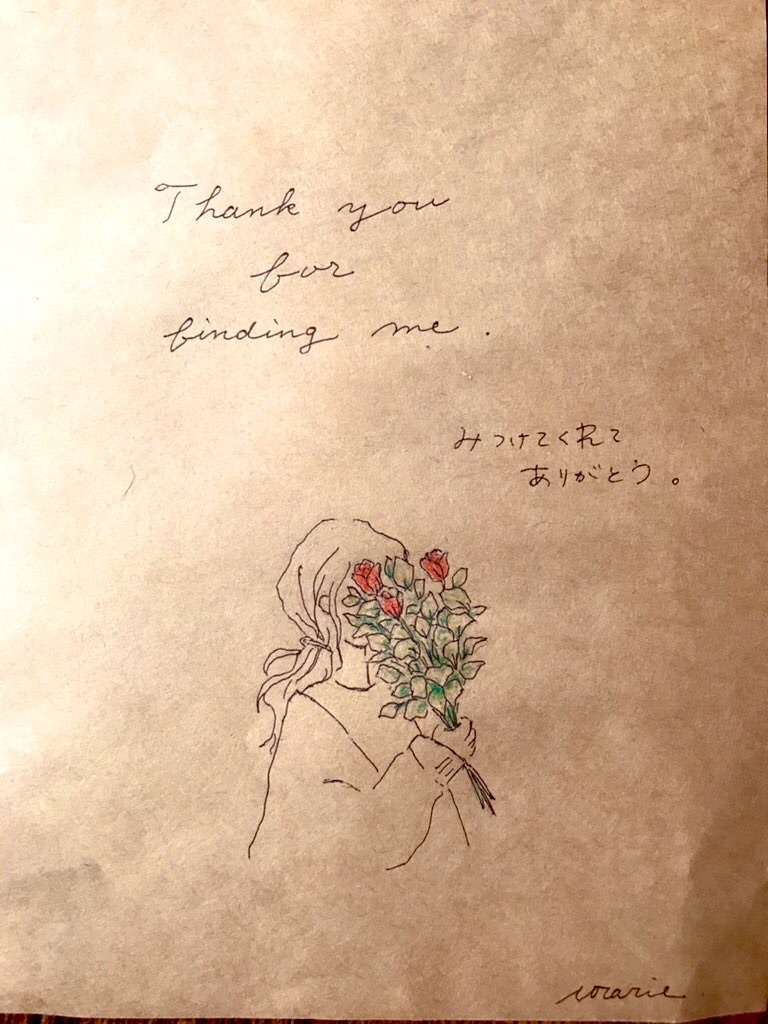 Thank you
for
finding me.
みつけてくれて
ありがとう。